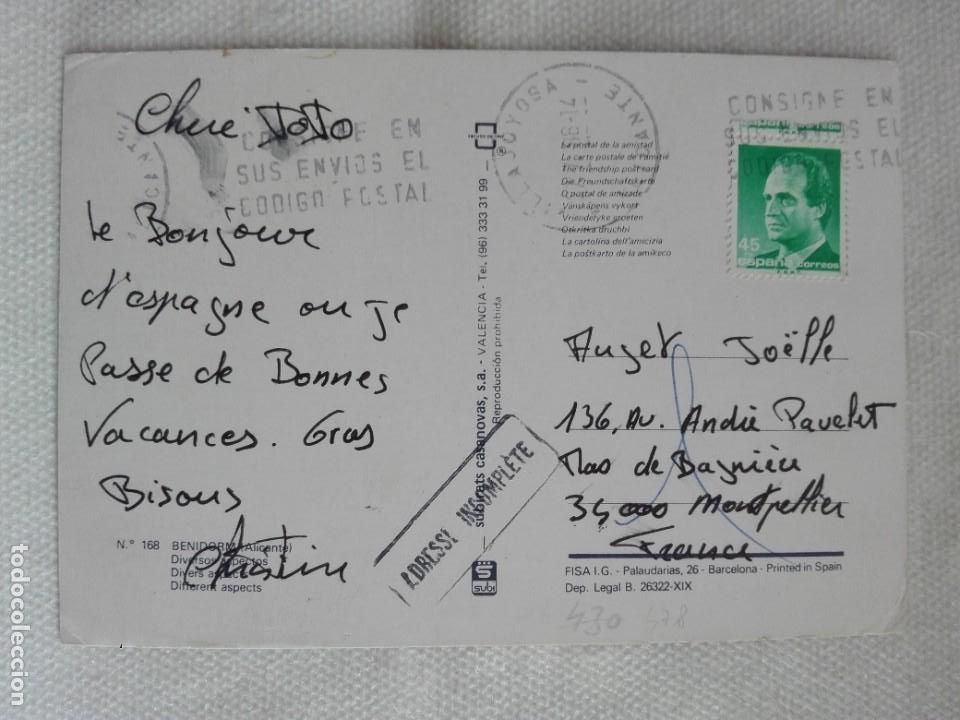 Cheri JoJo
le Bonjour
d'espagne ou je
Passe de Bonnes
Vacances. Gros
Bisous
Christine
N.º 168 BENIDORM (Alicante)
Diversos aspectos
Divers aspects
Different aspects
CONSIGNE EN
SUS ENVIOS EL
CODIGO POSTAL
subirats casanovas, s.a. - VALENCIA - Tel. (96) 333 31 99
Reproducción prohibida
subi
ADRESSE INCOMPLÈTE
La postal de la amistad
La carte postale de l'amitié
The friendship post card
Die Freundschaftskarte
O postal de amizade
Vänskäpens vykort
Vriendelyke groeten
Otkritka druchbi
La cartolina dell'amicizia
La postkarto de la amikeco
VILLAJOYOSA
ALICANTE
CONSIGNE EN
SUS ENVIOS EL
CODIGO POSTAL
45
españa correos
Auget Joëlle
136, Av. André Pavelet
Mas de Bagnière
34000 Montpellier
France
FISA I.G. - Palaudarias, 26 - Barcelona - Printed in Spain
Dep. Legal B. 26322-XIX
430 478
todocoleccion